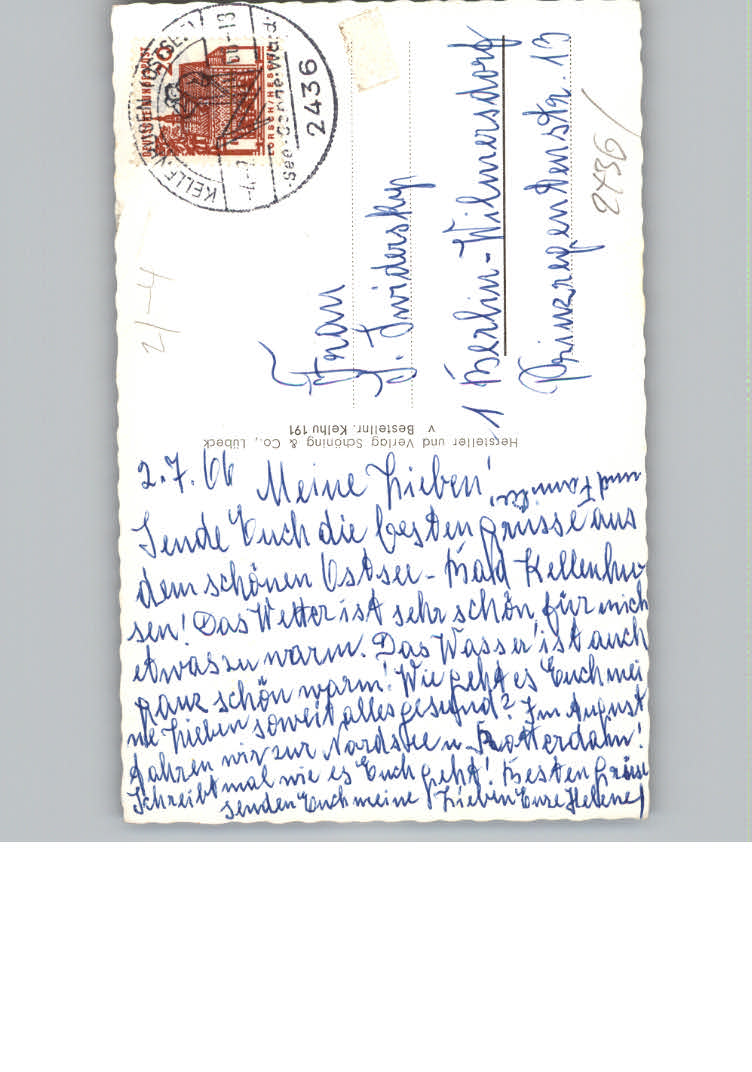 2.7.66 Meine Lieben!
und Familie!
Sende Euch die besten Grüsse aus
dem schönen Ostsee-Bad Kellenhu-
sen! Das Wetter ist sehr schön, für mich
etwas zu warm. Das Wasser ist auch
ganz schön warm! Wie geht es Euch mei
ne Lieben soweit alles gesund? Im August
fahren wir zur Nordsee u. Rotterdam!
Schreibt mal wie es Euch geht! Besten Grüsse
senden Euch meine Lieben Eure Helene
Hersteller und Verlag Schöning & Co., Lübeck
v Bestellnr. Kelhu 191
Frau
J. Swidersky
1 Berlin-Wilmersdorf
Prinzregentenstr. 13
2436
2/-4
DEUTSCHE BUNDESPOST
20
LORSCH/HESSEN
KELLENHUSEN OSTSEE
See·Sonne·Wald
2436